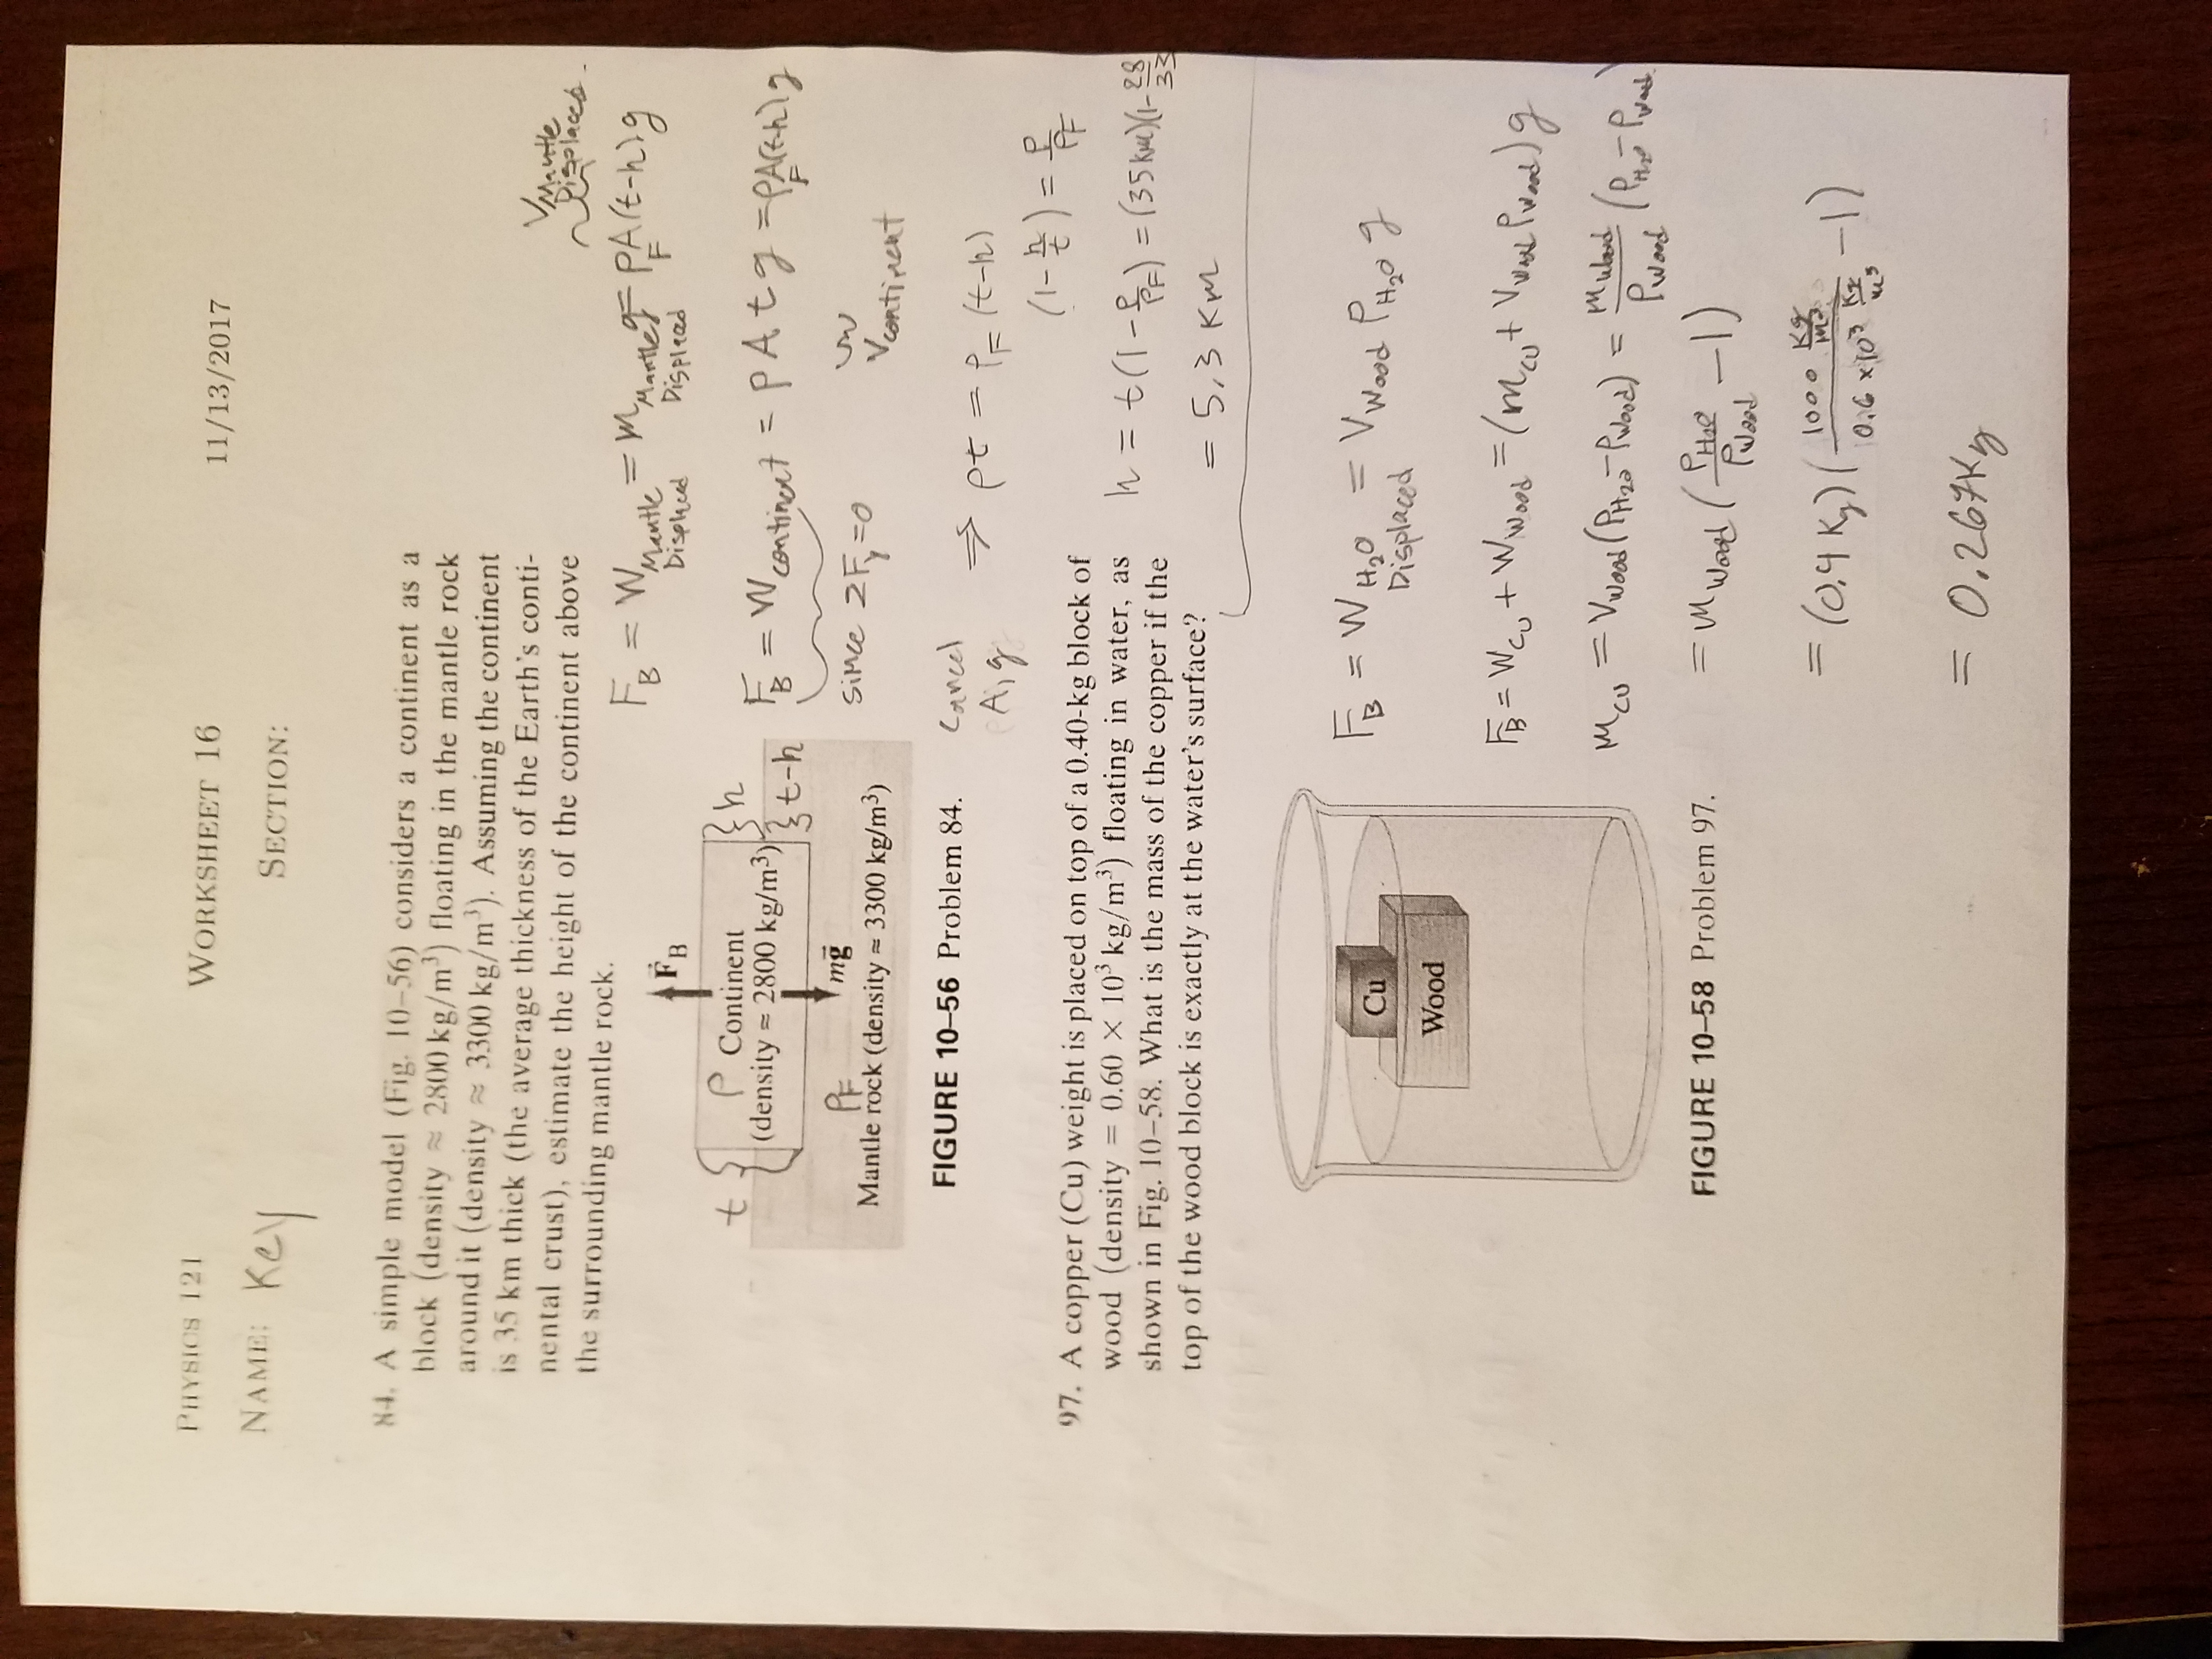 PHYSICS 121
WORKSHEET 16
11/13/2017
NAME: Key
SECTION:
84. A simple model (Fig. 10–56) considers a continent as a
block (density ≈ 2800 kg/m³) floating in the mantle rock
around it (density ≈ 3300 kg/m³). Assuming the continent
is 35 km thick (the average thickness of the Earth's conti-
nental crust), estimate the height of the continent above
the surrounding mantle rock.
V Mantle Displaced
F_B = W Mantle Displaced = m Mantle Displaced g = ρ_F A(t-h)g
F⃗_B
t { ρ Continent } h
(density ≈ 2800 kg/m³) } t-h
mg⃗
ρ_F
Mantle rock (density ≈ 3300 kg/m³)
F_B = W continent = ρ A t g = ρ_F A(t-h)g
since ΣF_y = 0
V continent
FIGURE 10–56 Problem 84.
Cancel
A, g
⇒ ρt = ρ_F (t-h)
(1 - h/t) = ρ/ρ_F
h = t(1 - ρ/ρ_F) = (35 km)(1 - 28/33
= 5.3 km
97. A copper (Cu) weight is placed on top of a 0.40-kg block of
wood (density = 0.60 × 10³ kg/m³) floating in water, as
shown in Fig. 10–58. What is the mass of the copper if the
top of the wood block is exactly at the water's surface?
Cu
Wood
FIGURE 10–58 Problem 97.
F_B = W H₂O Displaced = V Wood ρ H₂O g
F_B = W Cu + W Wood = (m Cu + V Wood ρ Wood) g
m Cu = V Wood (ρ H₂O - ρ Wood) = m Wood / ρ Wood (ρ H₂O - ρ Wood)
= m Wood (ρ H₂O / ρ Wood - 1)
= (0.4 Kg) (1000 Kg/m³ / 0.6 × 10³ Kg/m³ - 1)
= 0.267 Kg